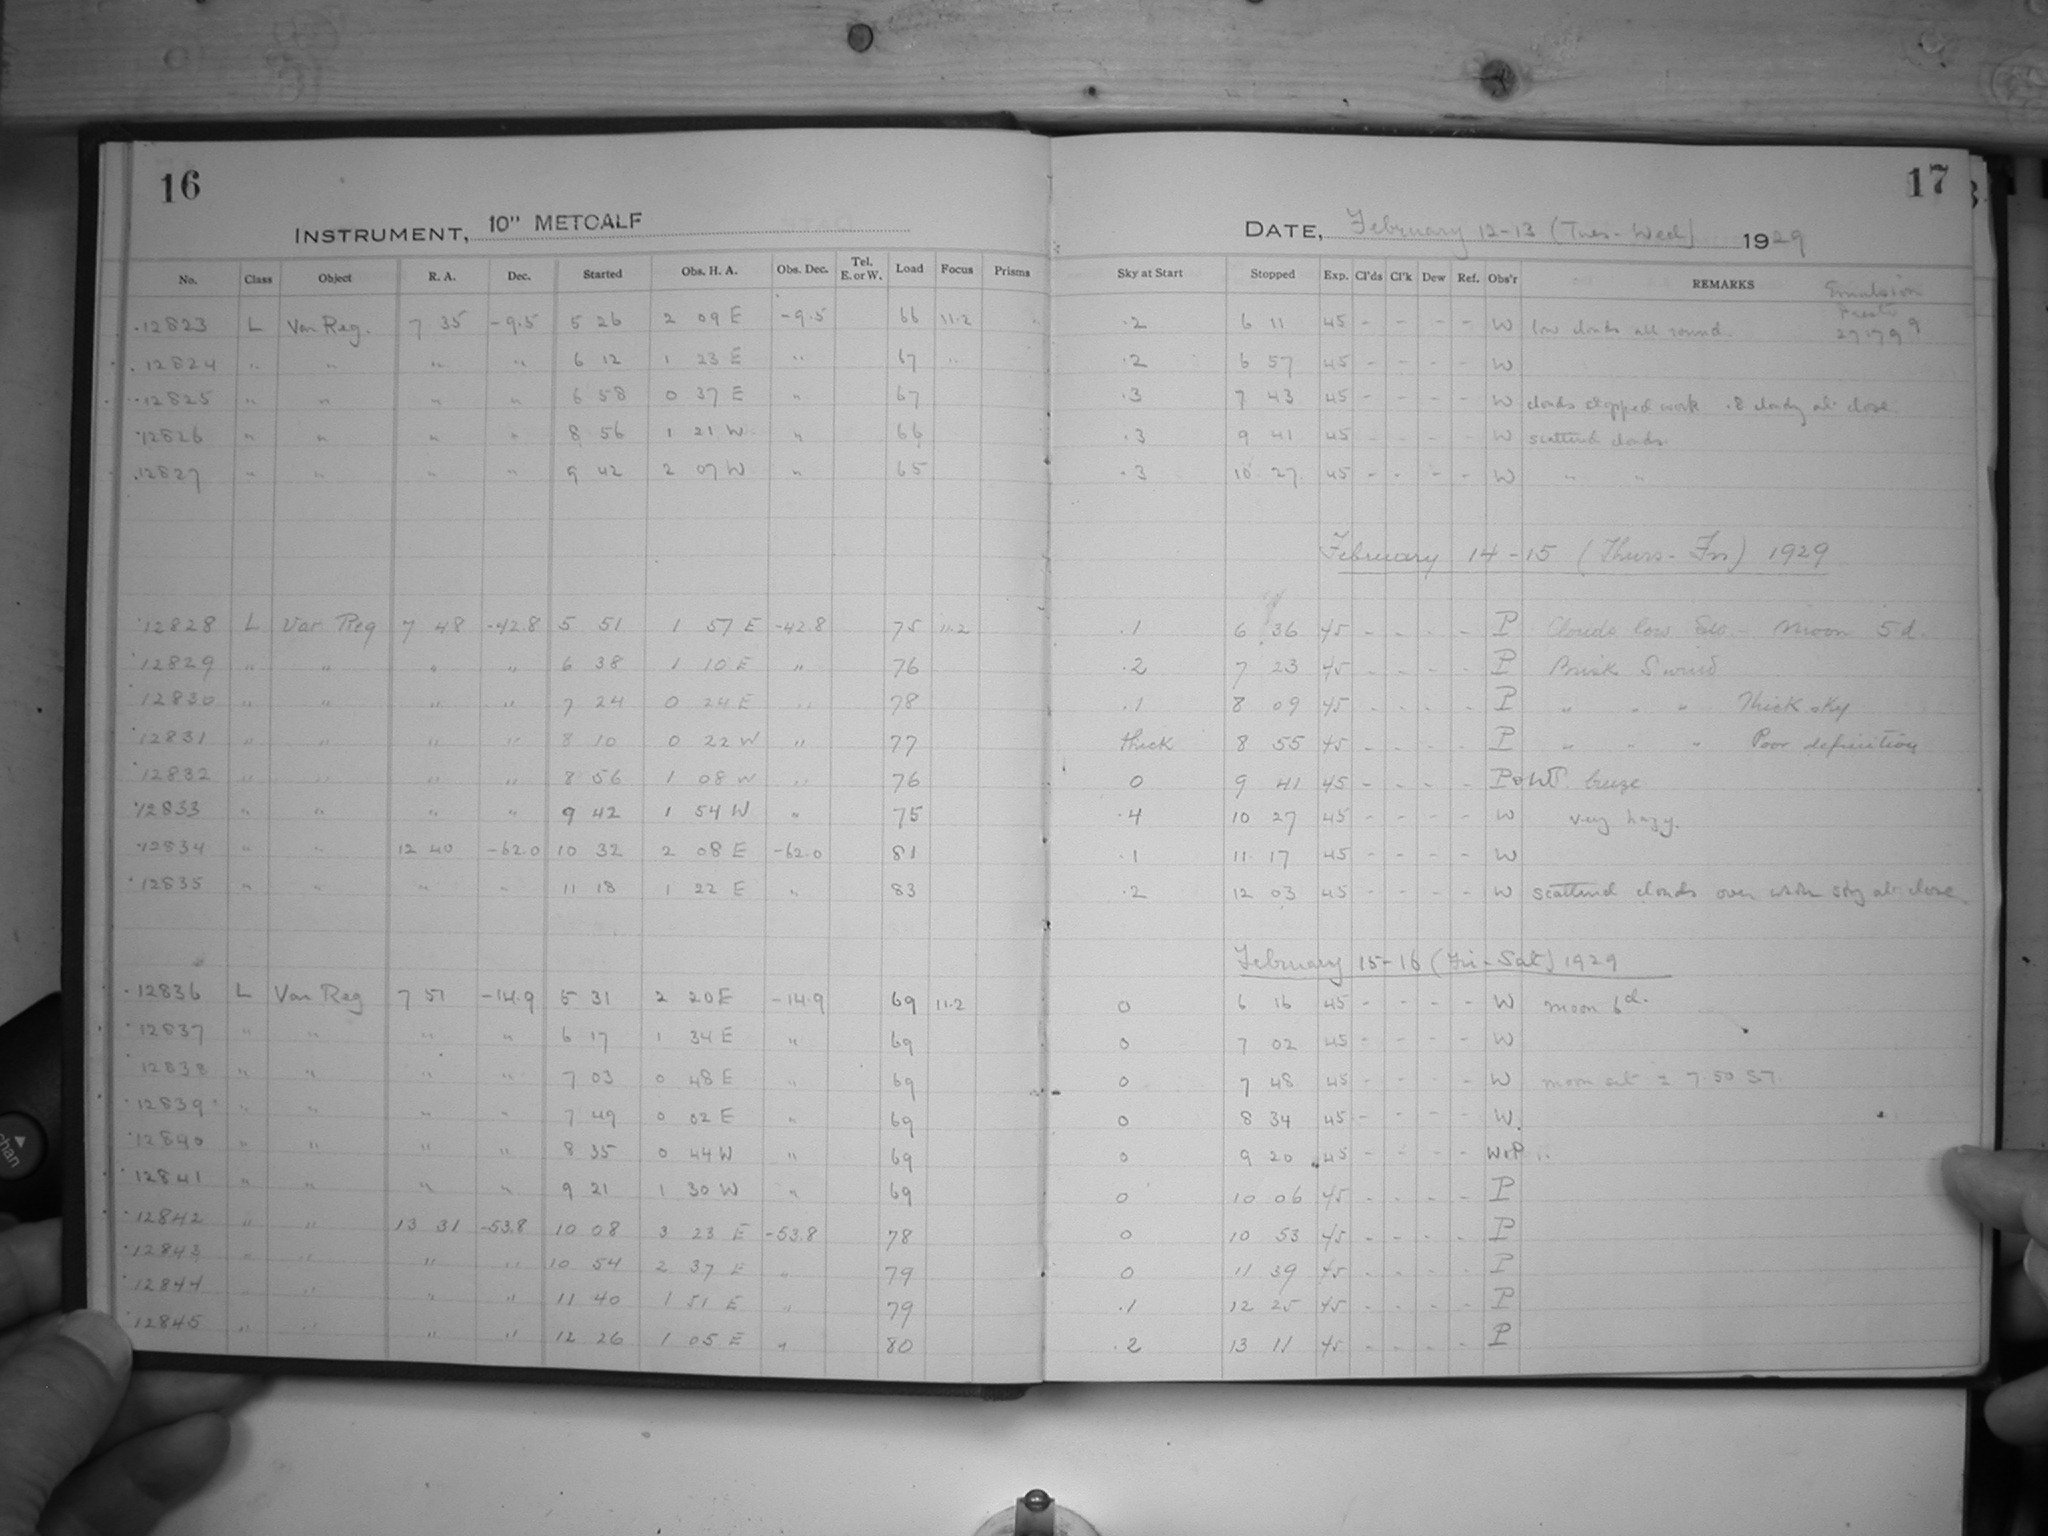 16
17
INSTRUMENT, 10" METCALF
DATE, February 12-13 (Tues-Wed) 1929
No. Class Object R. A. Dec. Started Obs. H. A. Obs. Dec. Tel. E. or W. Load Focus Prisms Sky at Start Stopped Exp. Cl'ds Cl'k Dew Ref. Obs'r REMARKS
Emulsion
12823 L Var Reg. 7 35 -9.5 5 26 2 09 E -9.5 66 11.2 .2 6 11 45 - - - - W low clouds all round. 27179
12824 " " " " 6 12 1 23 E " 67 " .2 6 57 45 - - - - W
12825 " " " " 6 58 0 37 E " 67 .3 7 43 45 - - - - W clouds stopped work .8 cloudy at close
12826 " " " " 8 56 1 21 W " 66 .3 9 41 45 - - - - W scattered clouds.
12827 " " " " 9 42 2 07 W " 65 .3 10 27 45 - - - - W " "
February 14-15 (Thurs-Fri) 1929
12828 L Var Reg 7 48 -42.8 5 51 1 57 E -42.8 75 11.2 .1 6 36 45 - - - - P Clouds low - Moon 5d.
12829 " " " " 6 38 1 10 E " 76 .2 7 23 45 - - - - P Brisk S wind
12830 " " " " 7 24 0 24 E " 78 .1 8 09 45 - - - - P " " " Thick sky
12831 " " " " 8 10 0 22 W " 77 thick 8 55 45 - - - - P " " " Poor definition
12832 " " " " 8 56 1 08 W " 76 0 9 41 45 - - - - P+W breeze
12833 " " " " 9 42 1 54 W " 75 .4 10 27 45 - - - - W very hazy.
12834 " " 12 40 -62.0 10 32 2 08 E -62.0 81 .1 11 17 45 - - - - W
12835 " " " " 11 18 1 22 E " 83 .2 12 03 45 - - - - W scattered clouds over whole sky at close
February 15-16 (Fri-Sat) 1929
12836 L Var Reg 7 51 -14.9 5 31 2 20 E -14.9 69 11.2 0 6 16 45 - - - - W moon 6d.
12837 " " " " 6 17 1 34 E " 69 0 7 02 45 - - - - W
12838 " " " " 7 03 0 48 E " 69 0 7 48 45 - - - - W moon set ± 7.50 ST.
12839 " " " " 7 49 0 02 E " 69 0 8 34 45 - - - - W.
12840 " " " " 8 35 0 44 W " 69 0 9 20 45 - - - - W+P
12841 " " " " 9 21 1 30 W " 69 0 10 06 45 - - - - P
12842 " " 13 31 -53.8 10 08 3 23 E -53.8 78 0 10 53 45 - - - - P
12843 " " " " 10 54 2 37 E " 79 0 11 39 45 - - - - P
12844 " " " " 11 40 1 51 E " 79 .1 12 25 45 - - - - P
12845 " " " " 12 26 1 05 E " 80 .2 13 11 45 - - - - P